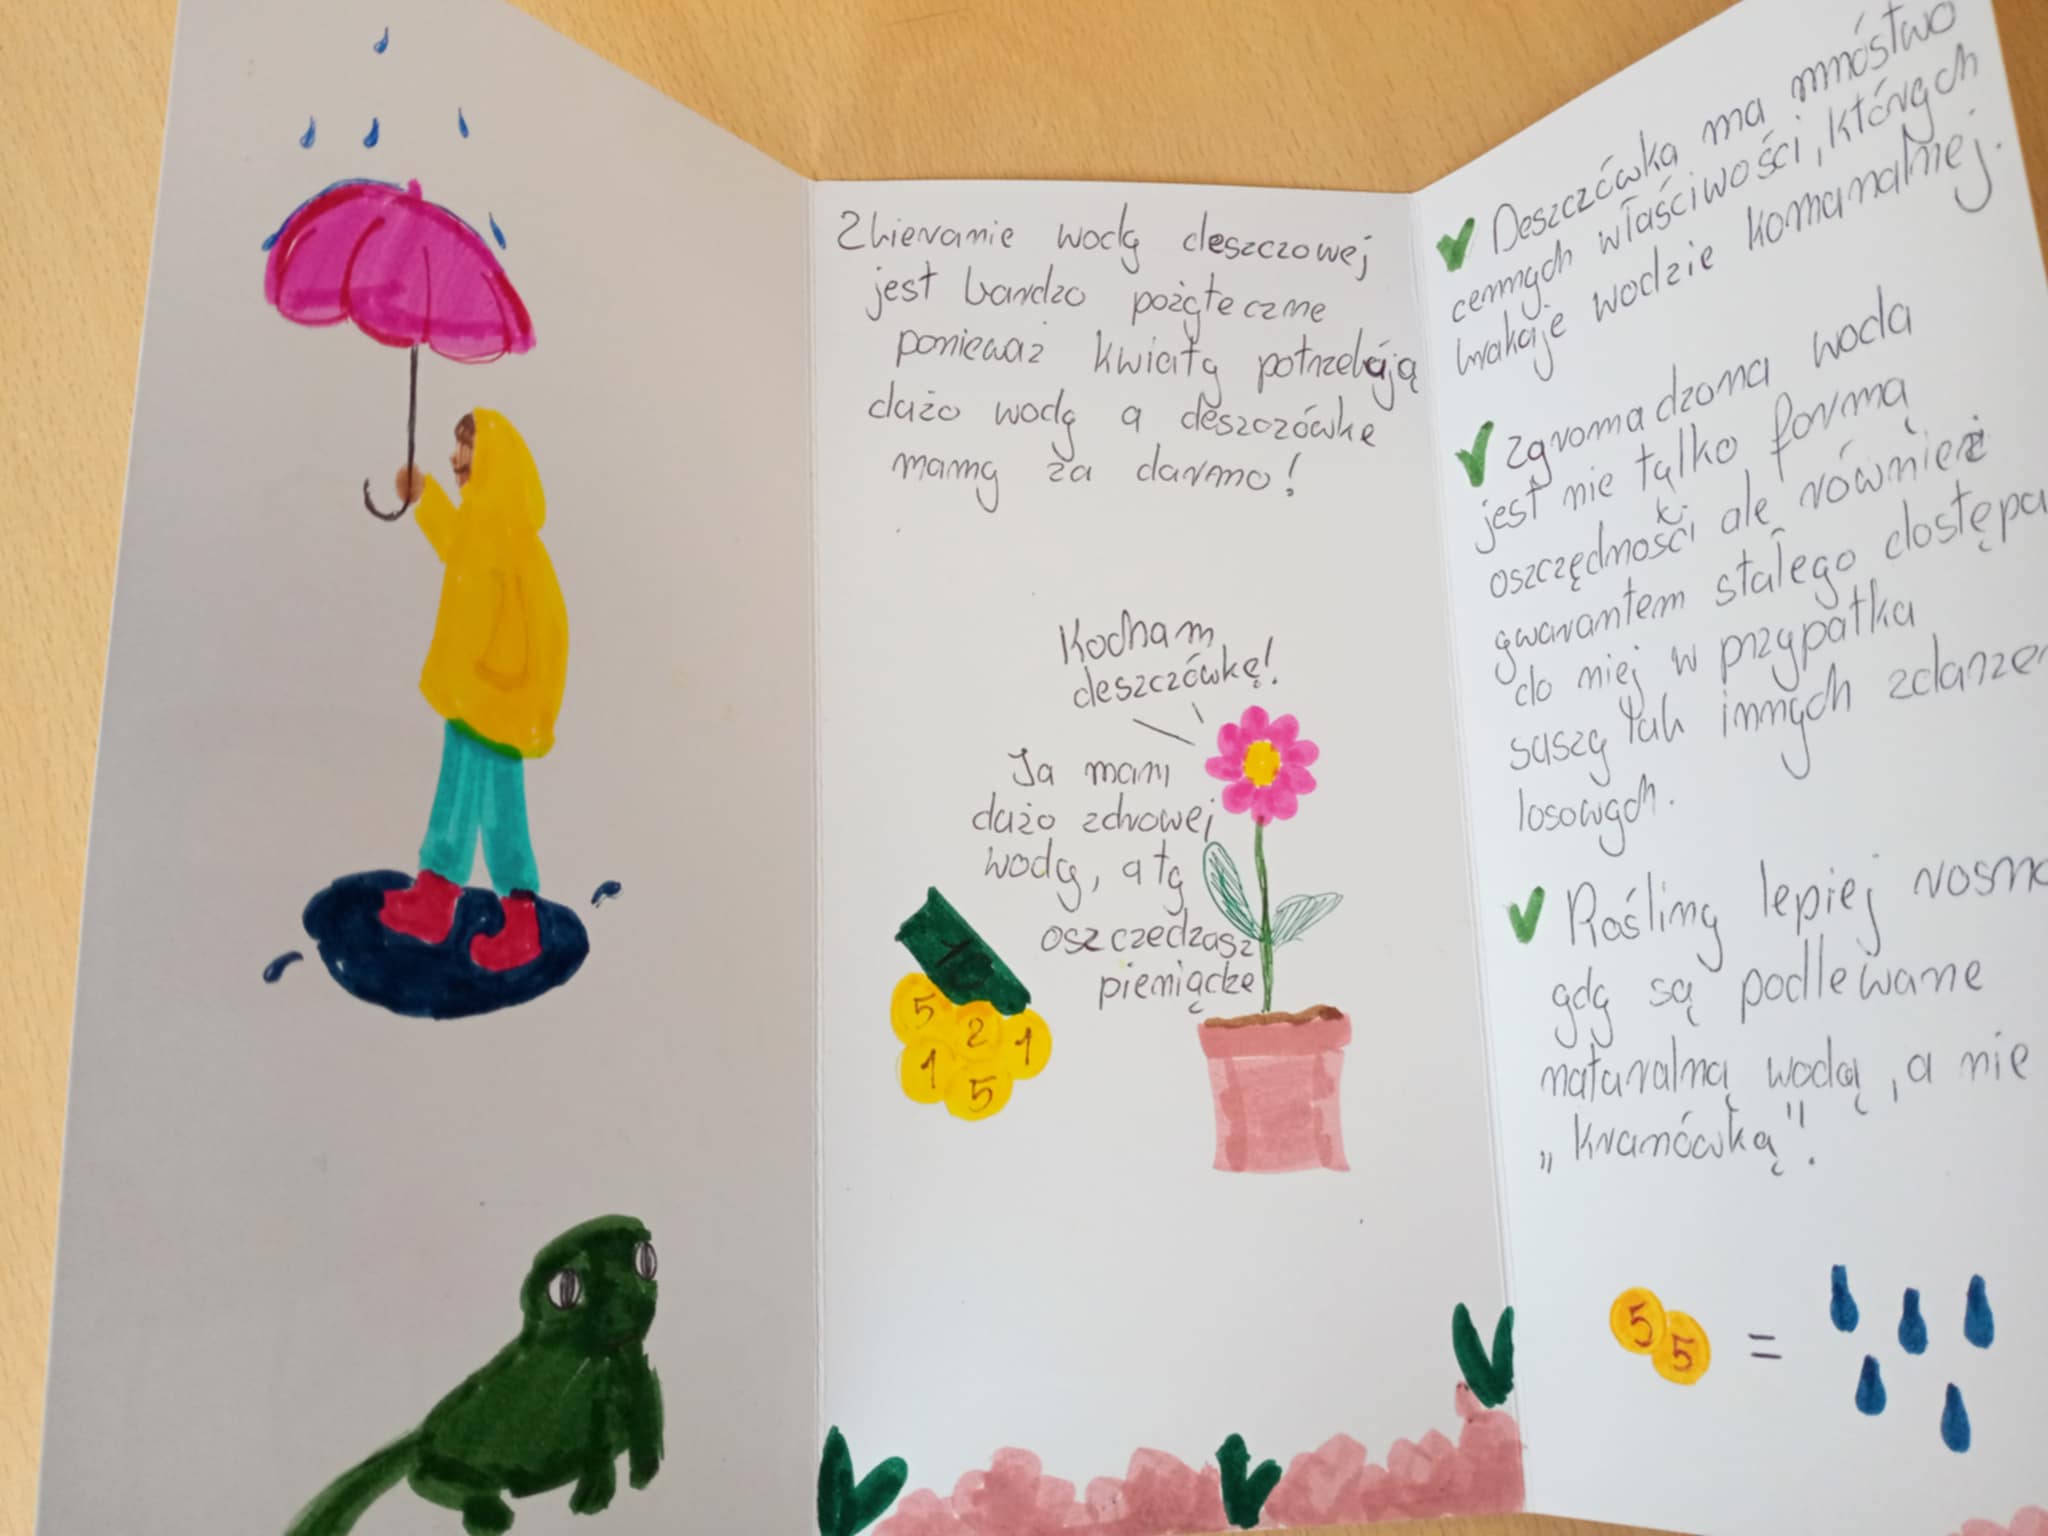 Zbieranie wody deszczowej
jest bardzo pożyteczne
ponieważ kwiaty potrzebują
dużo wody a deszczówkę
mamy za darmo!
Kocham
deszczówkę!
Ja mam
dużo zdrowej
wody, a ty
oszczędzasz
pieniądze
10
5 2 1
1 5
Deszczówka ma mnóstwo
cennych właściwości, których
brakuje wodzie komunalnej.
Zgromadzona woda
jest nie tylko formą
oszczędności ale również
gwarantem stałego dostępu
do niej w przypatku
suszy lub innych zdarzeń
losowych.
Rośliny lepiej rosną
gdy są podlewane
naturalną wodą, a nie
„kranówką".
5 5 =